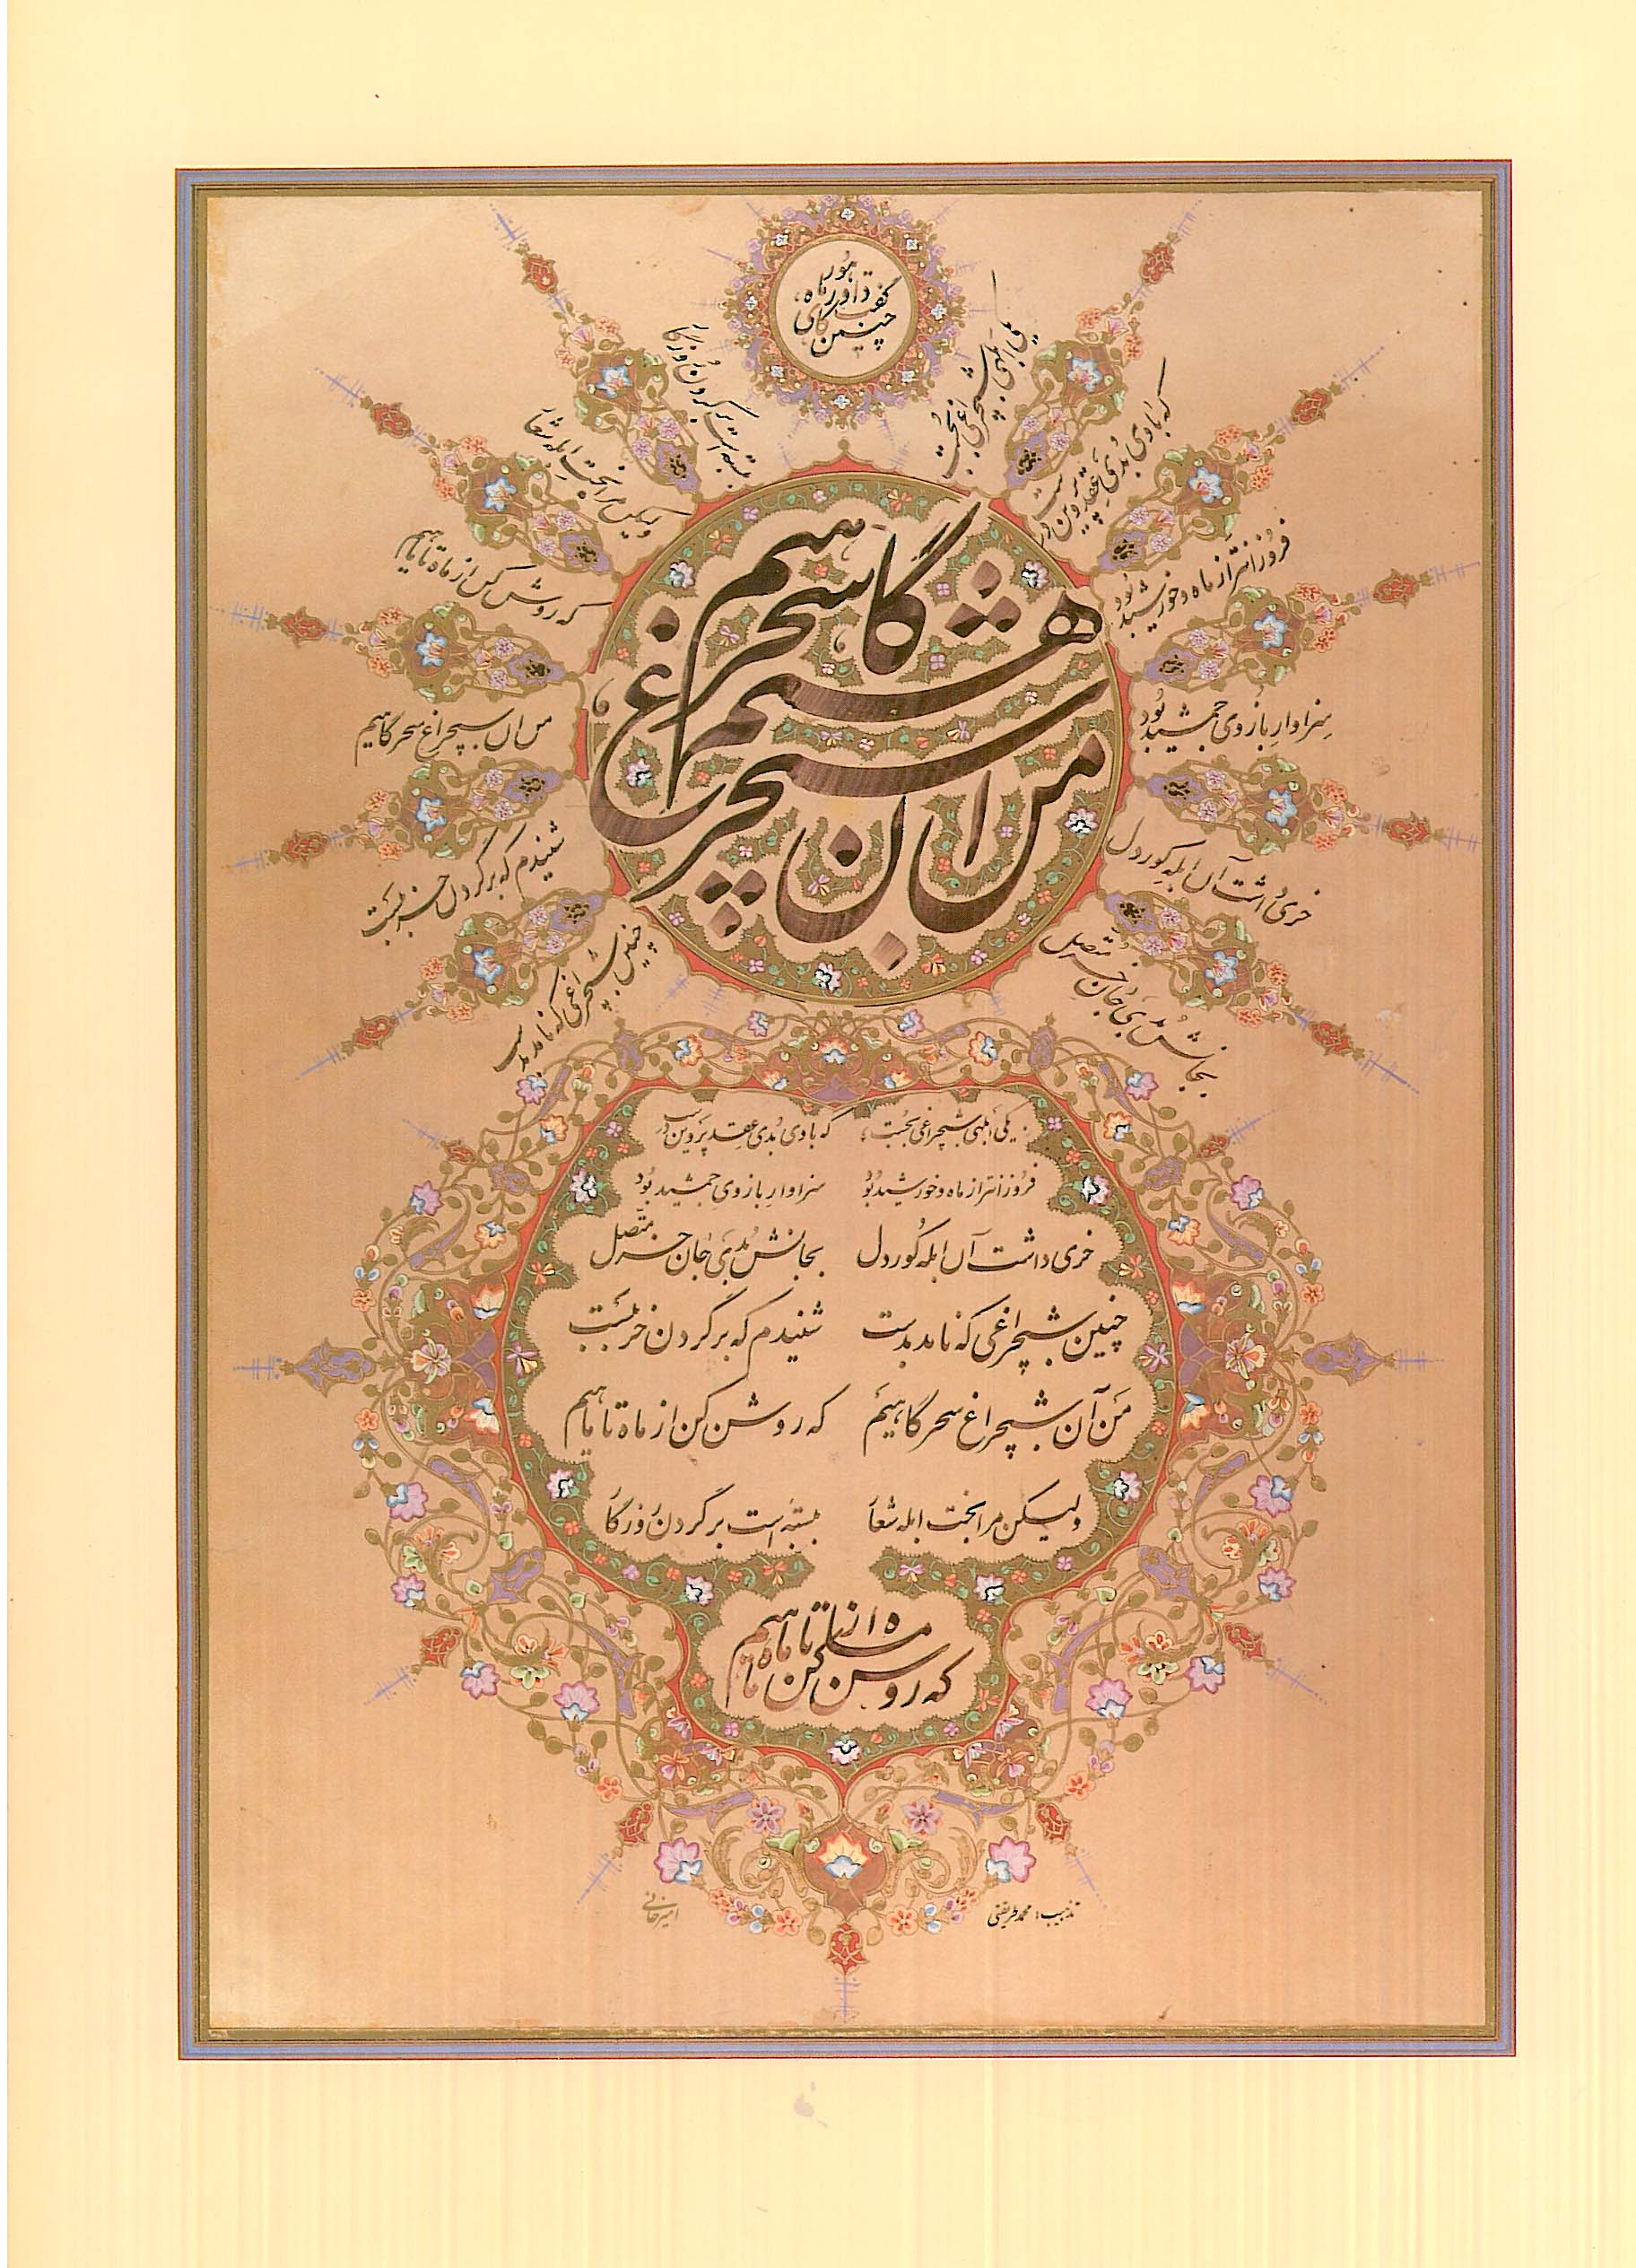 چنین گفت داور گاه هور
یکی ابلهی شبچراغی بجست
که با وی بدی عقد پروین درست
فروزانتر از ماه و خورشید بود
سزاوار بازوی جمشید بود
خری داشت آن ابله کوردل
بجانش بدی جان خر متصل
چنین شبچراغی که ناید بدست
شنیدم که بر گردن خر ببست
من آن شبچراغ سحرگاهیم
که روشن کن از ماه تا ماهیم
ولیکن مرا بخت ابله شعار
بسته است بر گردن روزگار
من آن شبچراغ سحرگاهیم
یکی ابلهی شبچراغی بجست که با وی بدی عقد پروین درست
فروزانتر از ماه و خورشید بود سزاوار بازوی جمشید بود
خری داشت آن ابله کوردل بجانش بدی جان خر متصل
چنین شبچراغی که ناید بدست شنیدم که بر گردن خر ببست
من آن شبچراغ سحرگاهیم که روشن کن از ماه تا ماهیم
ولیکن مرا بخت ابله شعار بسته است بر گردن روزگار
که روشن کن از ماه تا ماهیم
تذهیب: محمد طریقتی
امیرخانی